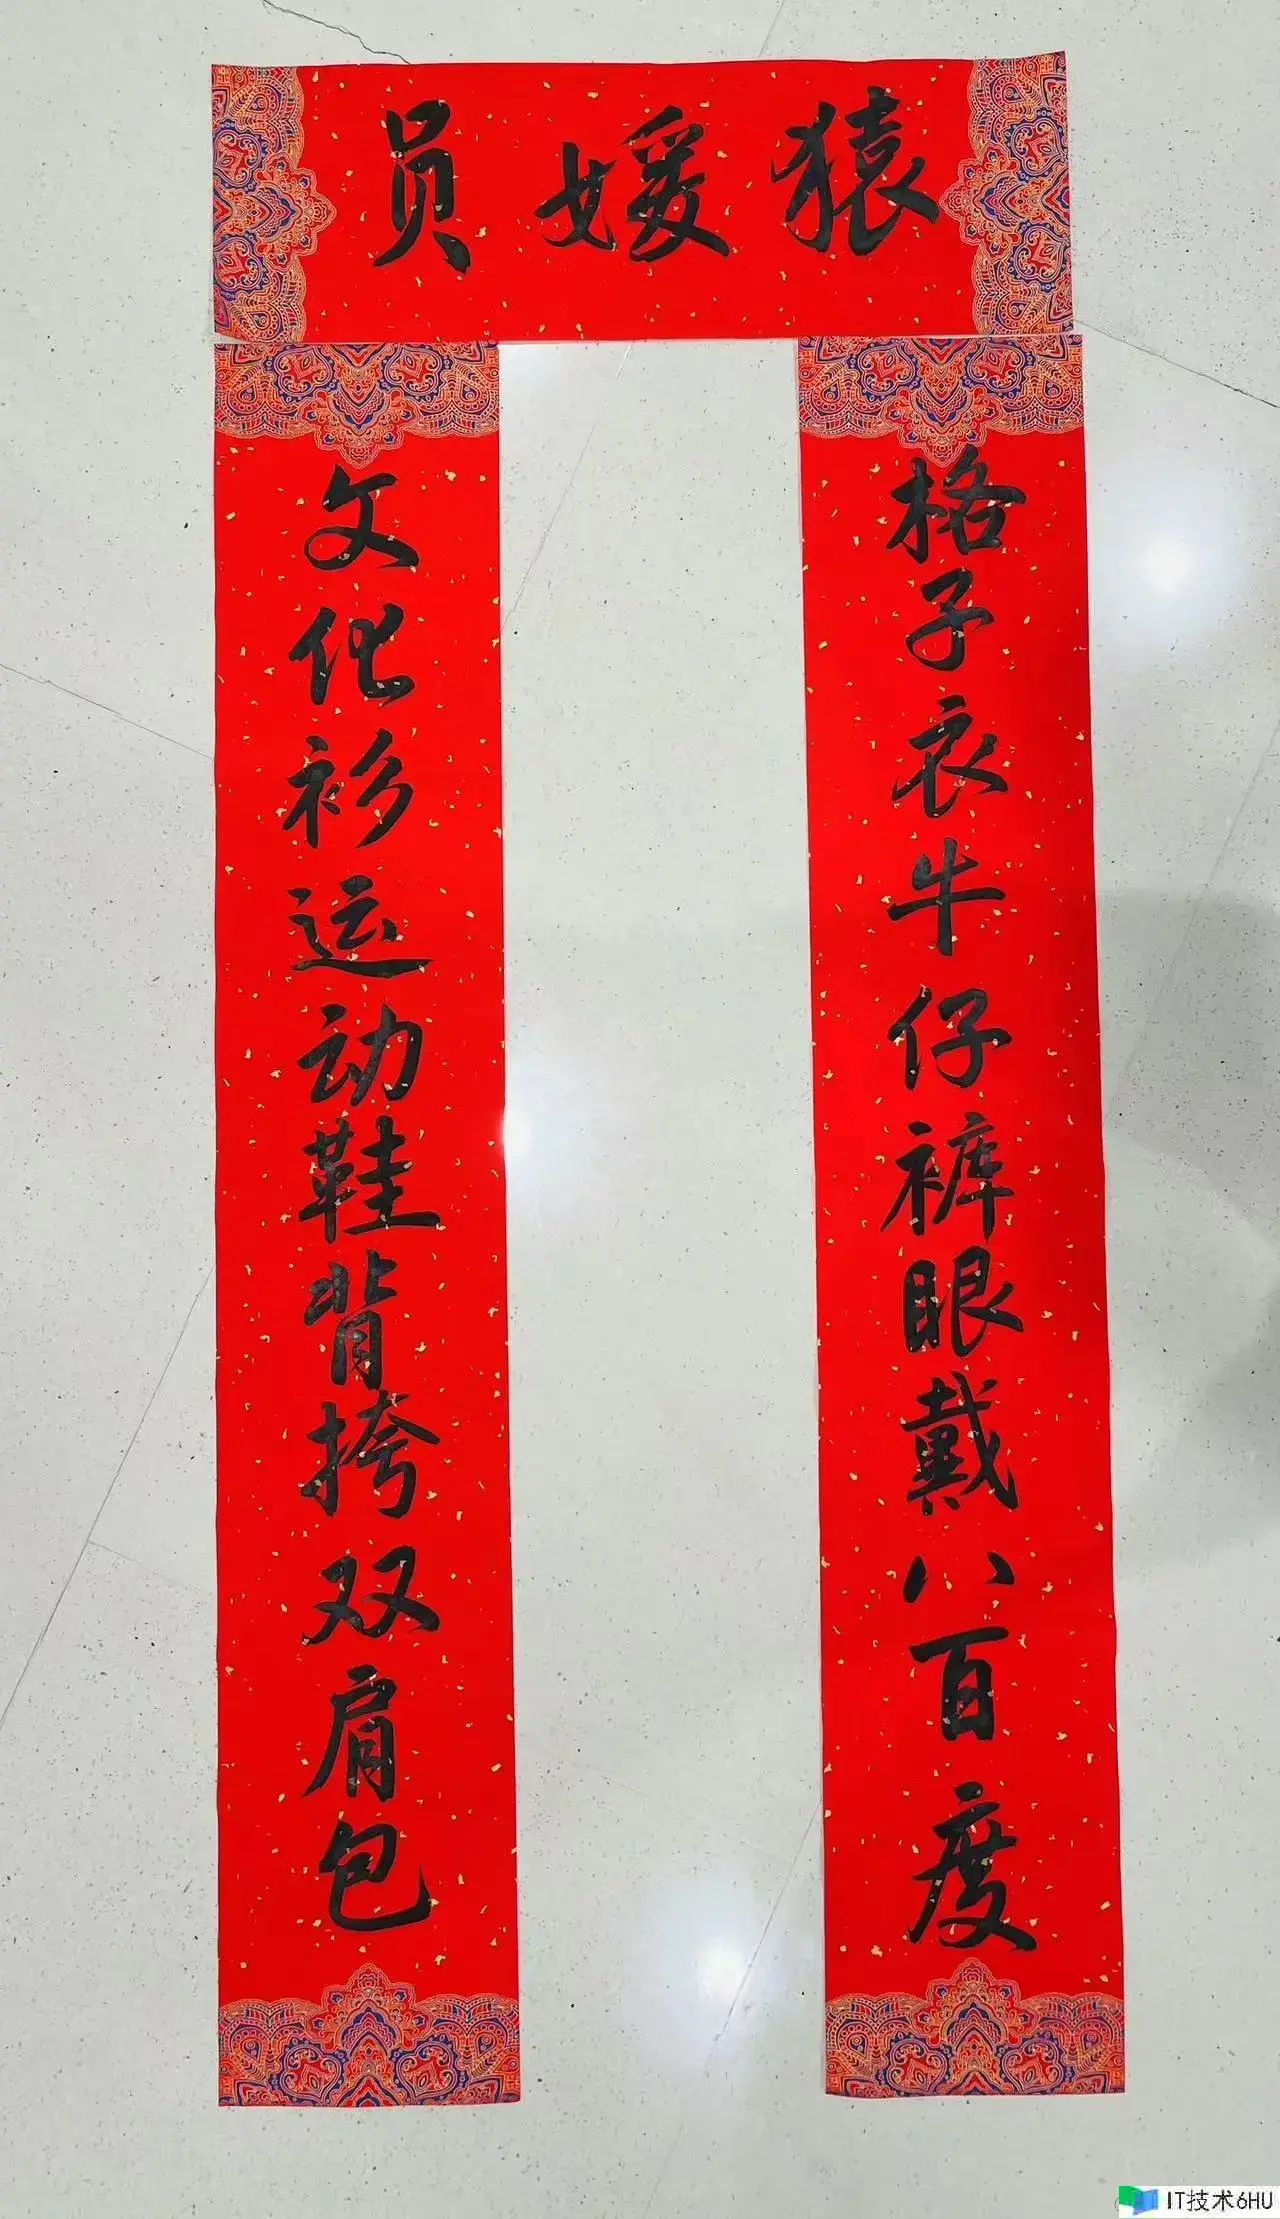 猿媛员
格子衣牛仔裤眼戴八百度
文化衫运动鞋背挎双肩包
IT技术6HU